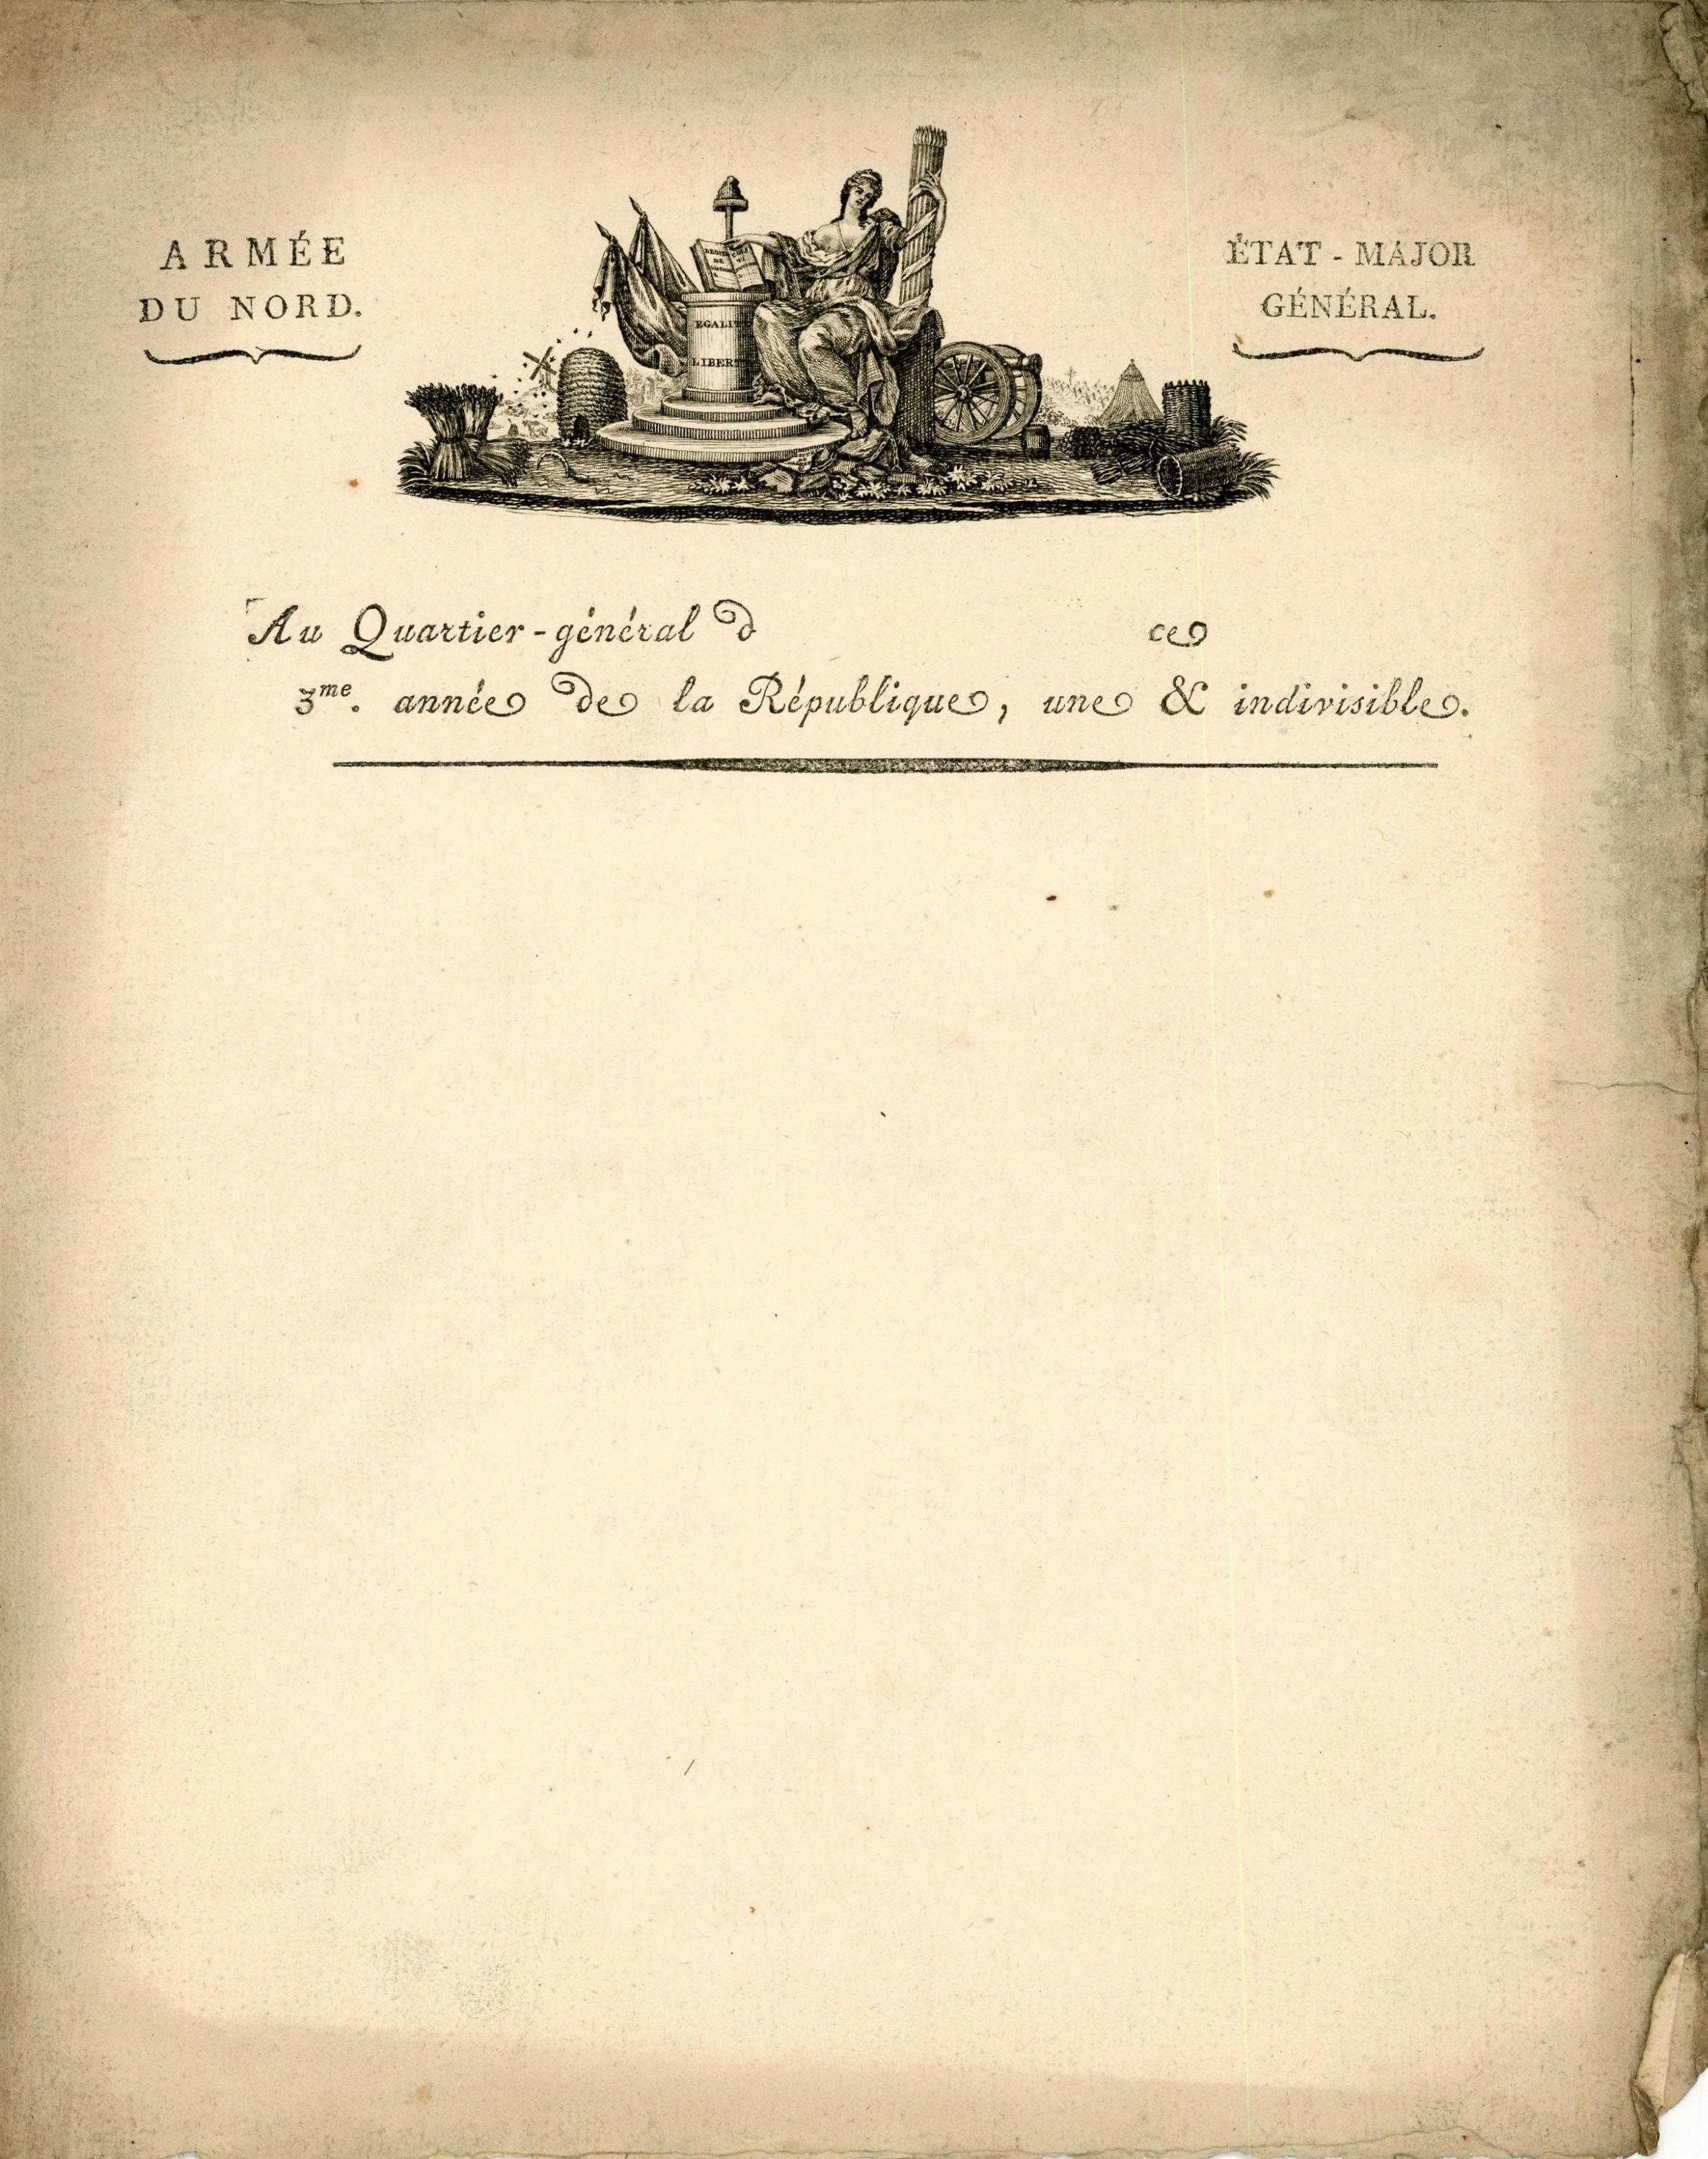 ARMÉE
DU NORD.
ÉTAT - MAJOR
GÉNÉRAL.
EGALIT
LIBERT
Au Quartier-général d ce
3me. année de la République, une & indivisible.